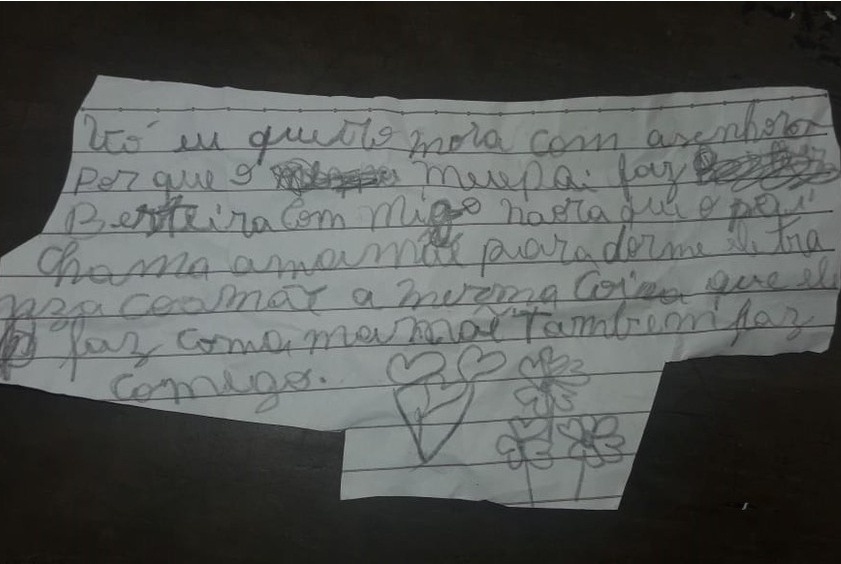 Vó eu quero mora com a senhora
Por que o meu pai faz
Besteira com migo na ora que o
chama a mamãe para dormi ele tra
a mesma Coisa que el
faz com a mamãe Também faz
comigo.